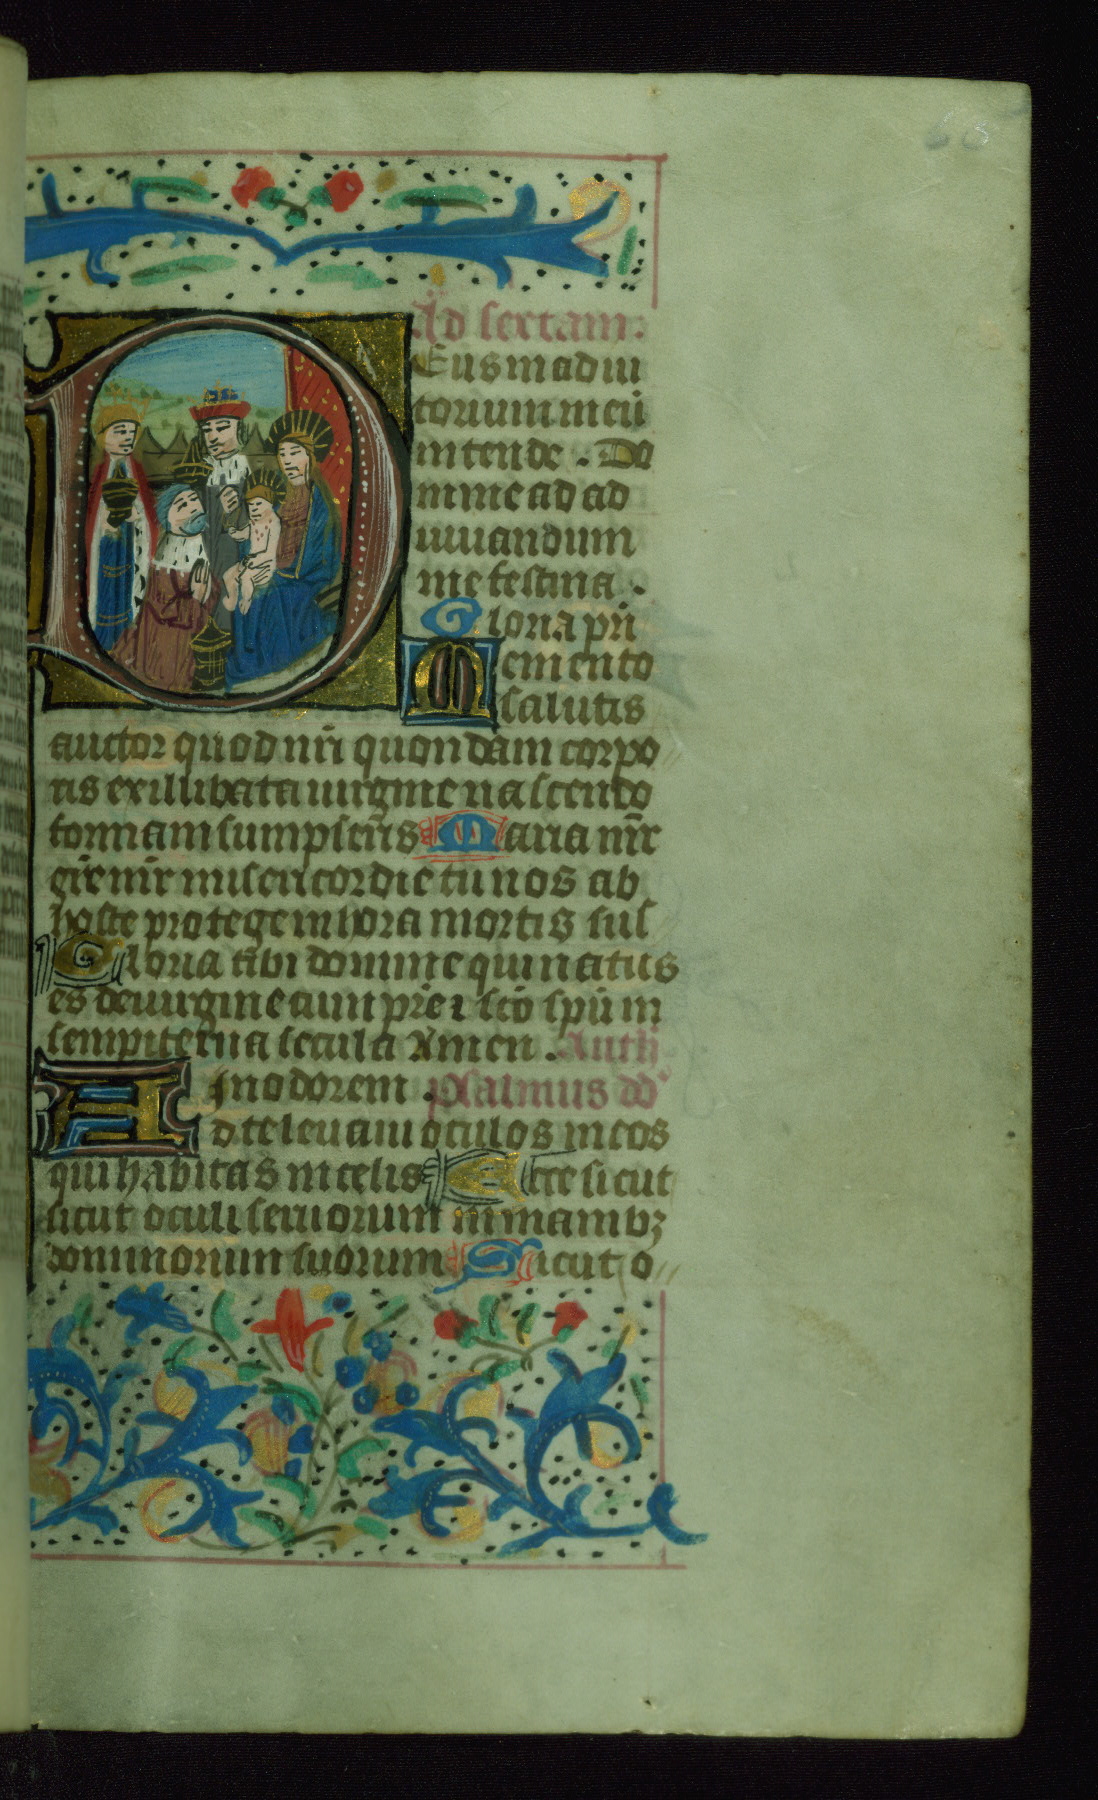 Ad sextam.
Eus in adiu
torium meū
intende. Do
mine ad ad
iuuandum
me festina.
Gloria pri
Memento
salutis
auctor quod nr̄i quondam corpo
ris ex illibata uirgine nascendo
formam sumpseris Maria mr̄
gr̄e mr̄ misericordie tu nos ab
hoste protege in hora mortis sus
Gloria tibi domine qui natus
es de uirgine cum pr̄e ⁊ sc̄o spū in
sempiterna secula Amen. Anth
In odorem. psalmus dd
Ad te leuaui oculos meos
qui habitas in celis Ecce sicut
sicut oculi seruorum in manibꝫ
dominorum suorum Sicut o